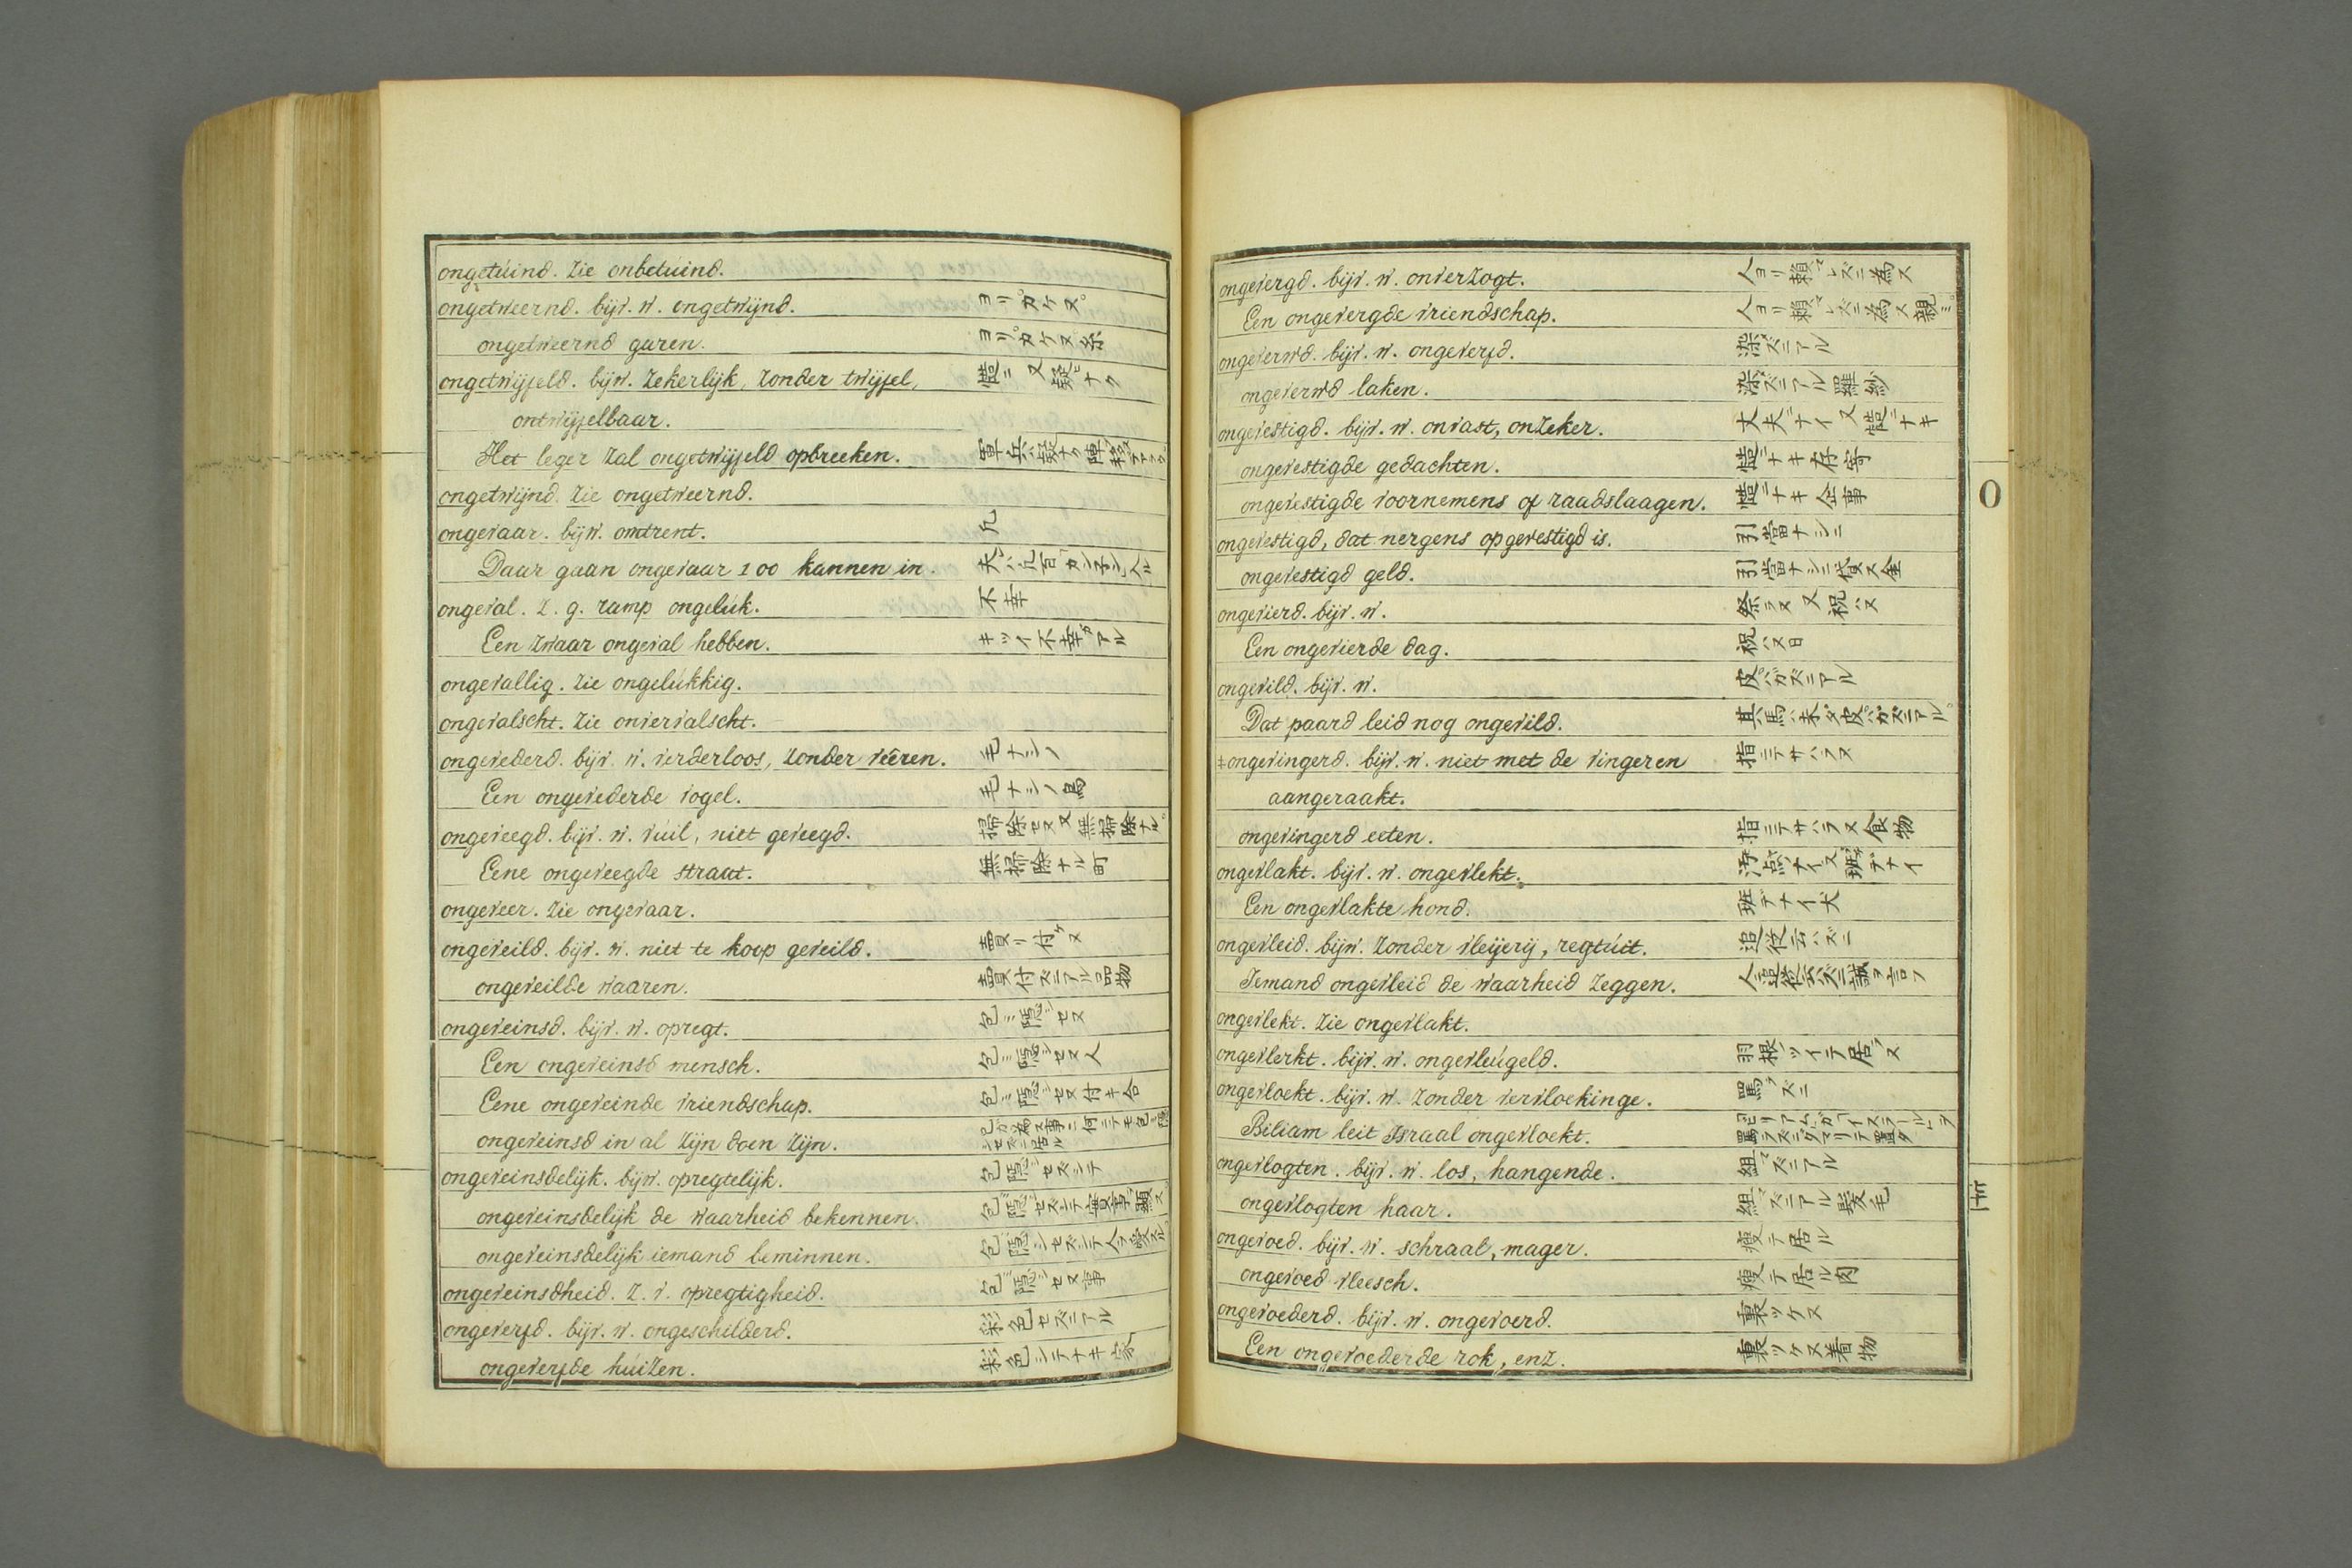 ongetúind. Zie onbetúind.
ongetweernd. bijv. w. ongetwijnd. ヨリガケヌ
ongetweernd garen. ヨリカケヌ糸
ongetwijfeld. bijw. Zekerlijk, Zonder twijfel, 慥ニ 又 疑ナク
ontwijfelbaar.
Het leger Zal ongetwijfeld opbreeken. 軍兵ハ疑ナク陣
ongetwijnd. Zie ongetweernd.
ongevaar. bijw. omtrent. 凡
Daar gaan ongevaar 100 kannen in.
ongeval. Z. g. ramp ongelúk. 不幸
Een Zwaar ongeval hebben. キツイ不幸ガアル
ongevallig. Zie ongelúkkig.
ongevalscht. Zie onvervalscht.
ongevederd. bijv. w. verderloos, Zonder vêeren. 毛ナシノ
Een ongevederde vogel. 毛ナシノ鳥
ongeveegd. bijv. w. vúil, niet geveegd. 掃除セヌ又無掃除ナル
Eene ongeveegde straat. 無掃除ナル町
ongeveer. Zie ongevaar.
ongeveild. bijv. w. niet te koop geveild. 賣リ付ケヌ
ongeveilde waaren. 賣付ズニアル品物
ongeveinsd. bijv. w. opregt. 包ミ隠シセヌ
Een ongeveinsd mensch. 包ミ隠シセヌ人
Eene ongeveinde vriendschap. 包ミ隠シセヌ付キ合
ongeveinsd in al Zijn doen Zijn.
ongeveinsdelijk. bijw. opregtelijk. 包隠シセズシテ
ongeveinsdelijk de waarheid bekennen. 包隠シセズシテ實事ヲ顕ス
ongeveinsdelijk iemand beminnen. 包隠シセズシテ人ヲ愛スル
ongeveinsdheid. Z. v. opregtigheid. 包ミ隠シセヌ事
ongeverfd. bijv. w. ongeschilderd. 彩色セズニアル
ongeverfde húiZen. 彩色シテナキ家
ongevergd. bijv. w. onverZogt. 人ヨリ頼マレズニ為ス
Een ongevergde vriendschap. 人ヨリ頼マレズニ為ス親ミ
ongeverwd. bijv. w. ongeverfd. 染ズニアル
ongeverwd laken. 染ズニアル羅紗
ongevestigd. bijv. w. onvast, onZeker. 丈夫ニナイ又慥ニナキ
ongevestigde gedachten. 慥ニナキ存寄
ongevestigde voornemens of raadslaagen. 慥ニナキ企事
ongevestigd, dat nergens op gevestigd is. 引當ナシニ
ongevestigd geld. 引當ナシニ貸ス金
ongevierd. bijv. w. 祭ラヌ又祝ハヌ
Een ongevierde dag. 祝ハヌ日
ongevild. bijv. w. 皮ハガズニアル
Dat paard leid nog ongevild. 其馬ハ未タ皮ハガズニアル
‡ongevingerd. bijv. w. niet met de vingeren 指ニテサハラヌ
aangeraakt.
ongevingerd eeten. 指ニテサハラヌ食物
ongevlakt. bijv. w. ongevlekt. 汚点ナイ又班デナイ
Een ongevlakte hond. 班デナイ犬
ongevleid. bijw. Zonder vleijerij, regtúit. 追従云ハズニ
Iemand ongevleid de waarheid Zeggen. 人ニ追従云ハズニ誠ヲ言フ
ongevlekt. Zie ongevlakt.
ongevlerkt. bijv. w. ongevleúgeld. 羽根ノツイテ居ラヌ
ongevloekt. bijv. w. Zonder vervloekinge. 罵ラズニ
Biliam leit Israal ongevloekt.
ongevlogten. bijv. w. los, hangende. 組マズニアル
ongevlogten haar. 組マズニアル髪毛
ongevoed. bijv. w. schraal, mager. 瘦テ居ル
ongevoed vleesch. 瘦テ居ル肉
ongevoederd. bijv. w. ongevoerd. 裏ツケヌ
Een ongevoederde rok, enZ. 裏ツケヌ着物
O